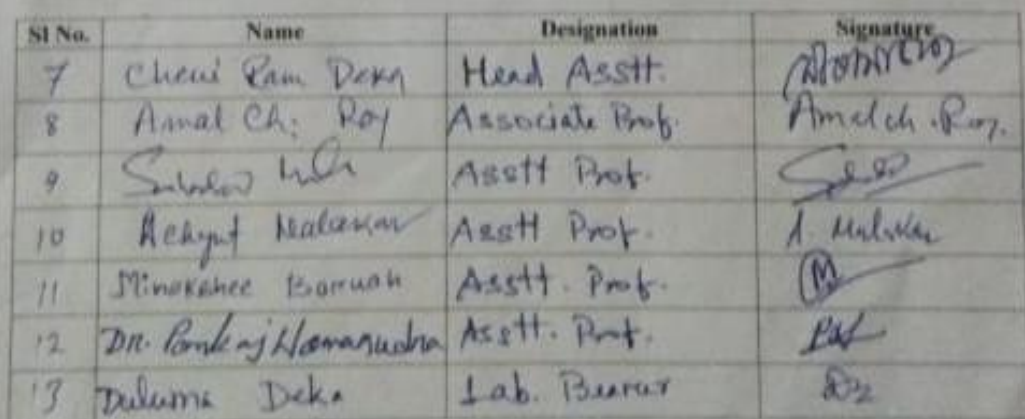 Sl No. Name Designation Signature
7 Cheni Ram Deka Head Asstt.
8 Amal Ch. Roy Associate Prof. Amal ch. Roy.
9 Asstt Prof.
10 Achyut Malakar Asstt Prof. A. Malakar
11 Minakshee Boruah Asstt. Prof. M
12 Dr. Pankaj Asstt. Prof.
13 Deka Lab. Bearer